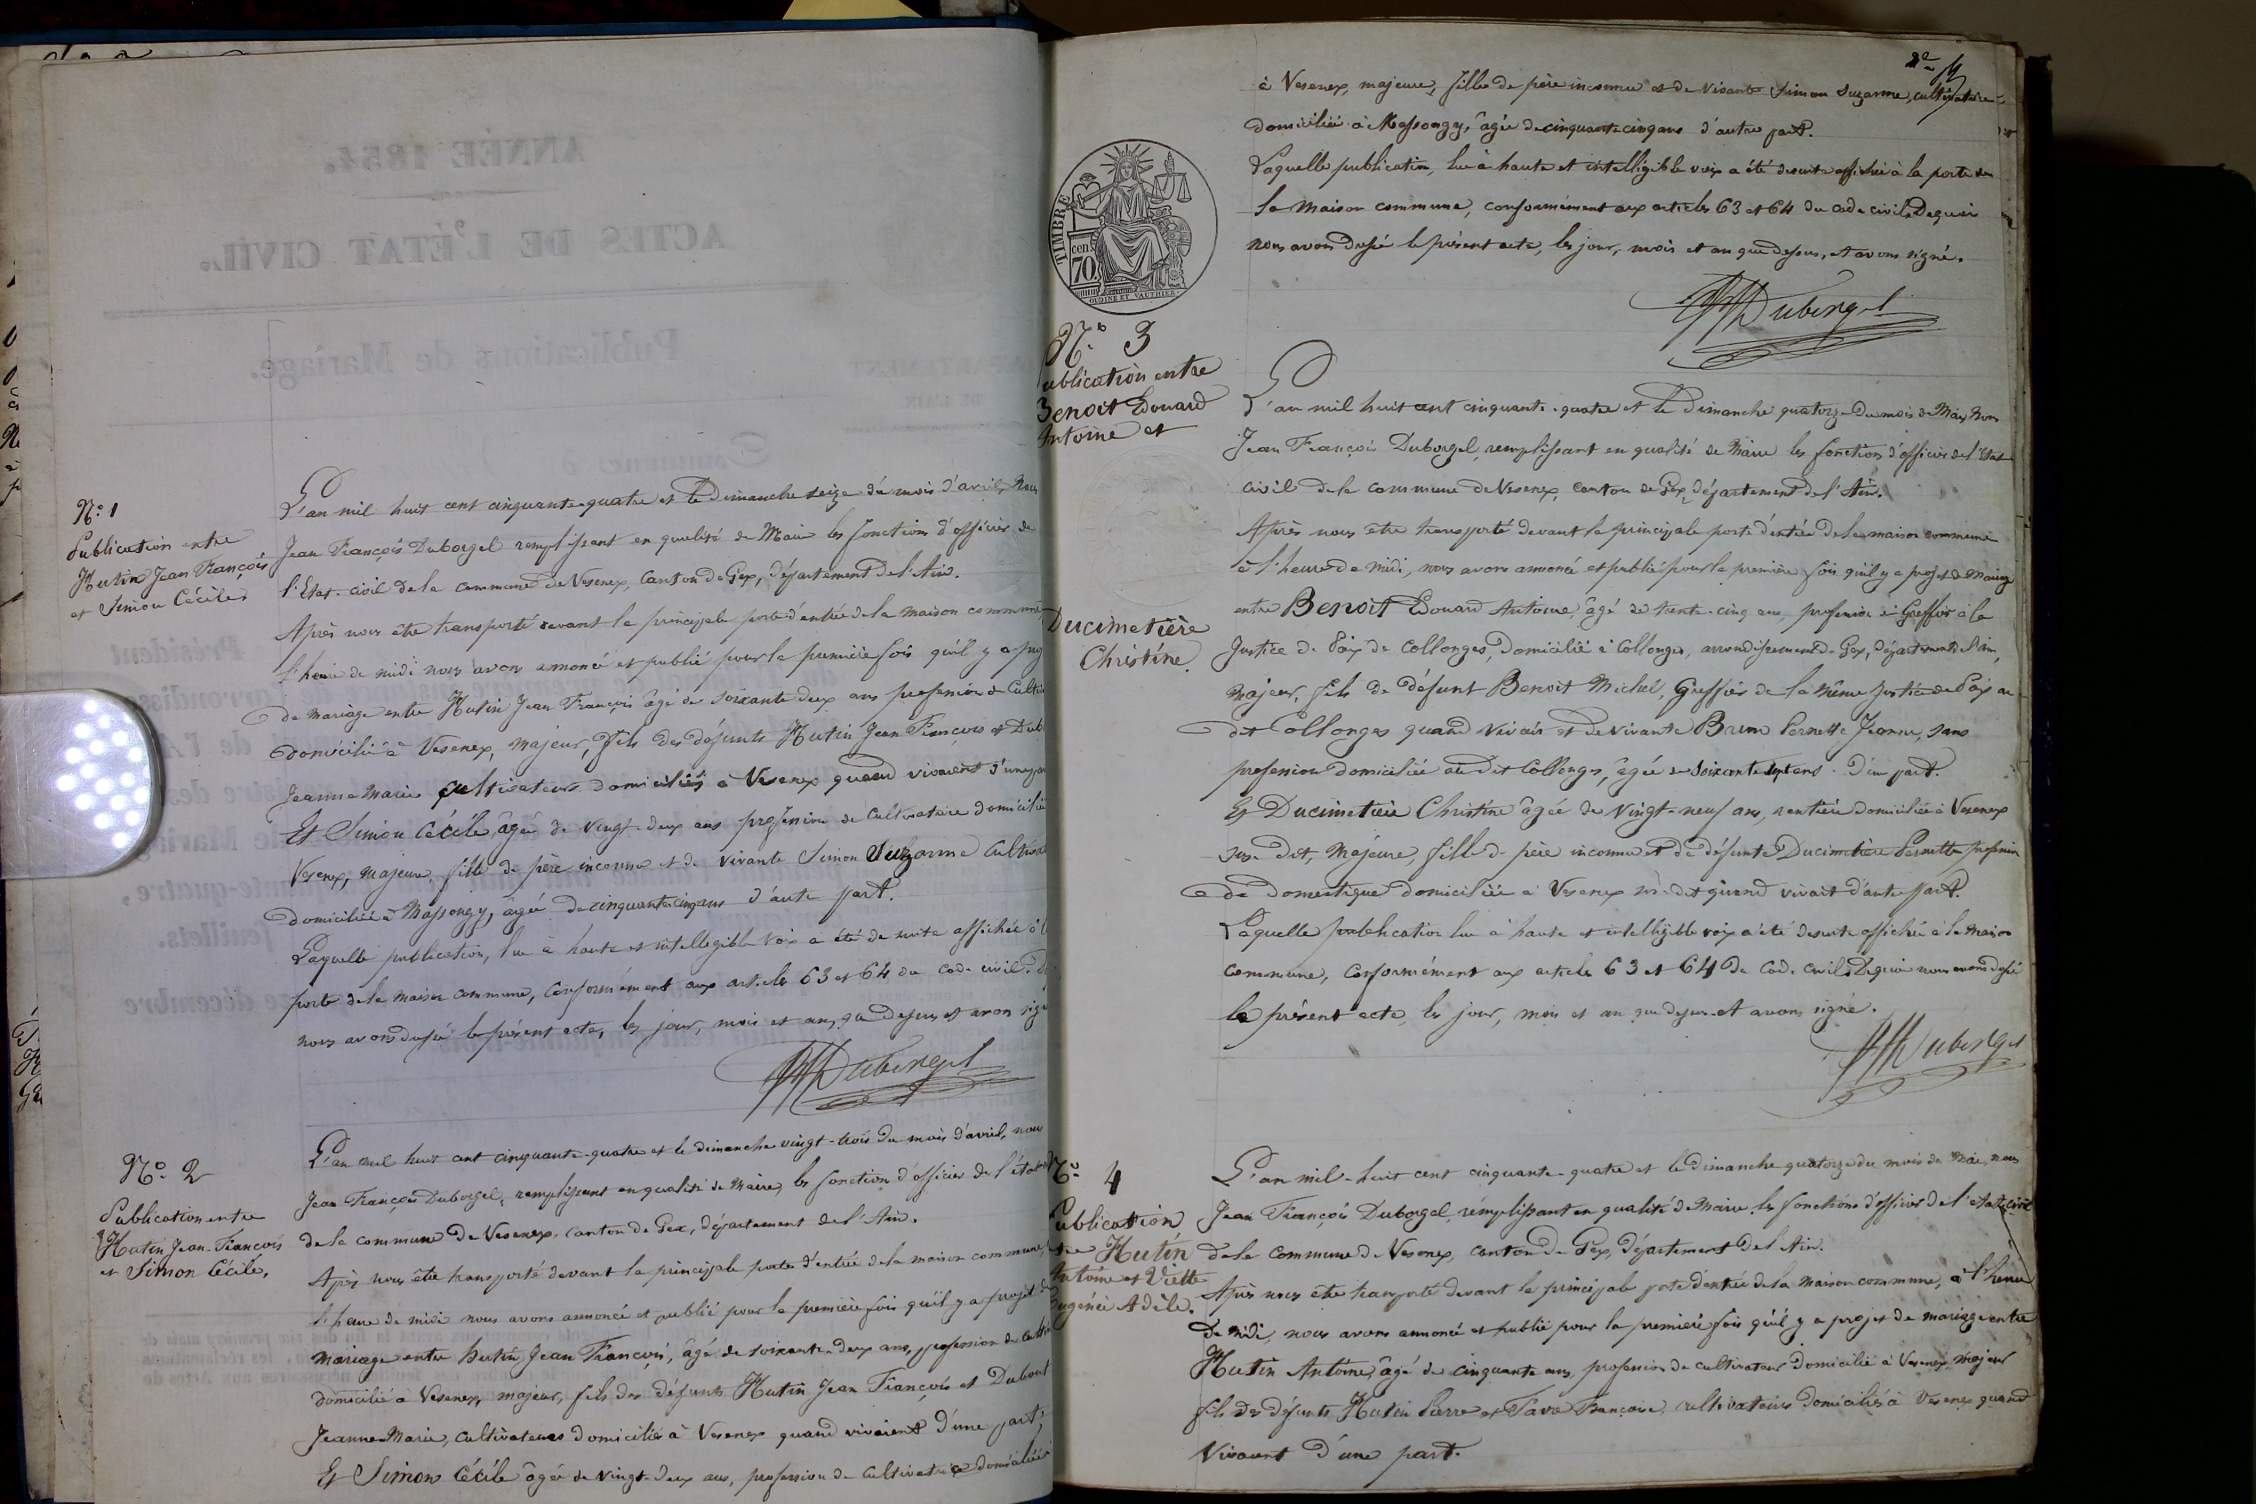 N.º 1
Publication entre
Hutin Jean François
et Simon Cécile.
L'an mil huit cent cinquante-quatre et le Dimanche seize du mois d'avril, Nous
Jean François Duborgel remplissant en qualité de Maire les fonctions d'officier de
l'Etat-civil de la commune de Vesenex, Canton de Gex, département de l'Ain.
Après nous être transporté devant la principale porte d'entrée de la maison commune,
l'heure de midi nous avons annoncé et publié pour la première fois qu'il y a proj
de mariage entre Hutin Jean François âgé de soixante deux ans profession de Cultiv
domicilié à Vesenex, majeur, fils des défunts Hutin Jean François et Dub
Jeanne Marie cultivateurs domiciliés à Vesenex quand vivaient d'une par
Et Simon Cécile âgée de vingt-deux ans profession de cultivatrice domiciliée
Vesenex, majeure, fille de père inconnu et de vivante Simon Suzanne Cultiva
domiciliée à Massongy, âgée de cinquante cinq ans d'autre part.
Laquelle publication, lue à haute et intelligible voix a été de suite affichée à l
porte de la maison commune, conformément aux articles 63 et 64 du code civil. D
nous avons dressé le présent acte, les jour, mois et an que dessus et avons sign
Duborgel
N.º 2
Publication entre
Hutin Jean-François
et Simon Cécile.
L'an mil huit cent cinquante-quatre et le dimanche vingt-trois du mois d'avril, nous
Jean François Duborgel, remplissant en qualité de Maire, les fonction d'officier de l'état
de la commune de Vesenex, canton de Gex, département de l'Ain.
Après nous être transporté devant la principale porte d'entrée de la maison commune,
l'heure de midi nous avons annoncé et publié pour la première fois qu'il y a projet de
mariage entre Hutin Jean François, âgé de soixante-deux ans, profession de cultiv
domicilié à Vesenex, majeur, fils des défunts Hutin Jean François et Dubout
Jeanne-Marie, cultivateurs domiciliés à Vesenex quand vivaient d'une part,
Et Simon Cécile âgée de vingt-deux ans, profession de cultivatrice domiciliée
2e
à Vesenex, majeure, fille de père inconnu et de vivante Simon Suzanne, cultivatrice
domiciliée à Massongy, âgée de cinquante cinq ans d'autre part.
Laquelle publication, lue à haute et intelligible voix a été de suite affichée à la porte de
la Maison commune, conformément aux articles 63 et 64 du code civil. De quoi
nous avons dressé le présent acte, les jour, mois et an que dessus, et avons signé.
Duborgel
TIMBRE
cen.
70
OUDINE ET VAUTHIER
N.º 3
ublication entre
Benoit Edouard
Antoine et
Ducimetière
Christine.
L'an mil huit cent cinquante-quatre et le Dimanche quatorze du mois de Mai, Nous
Jean François Duborgel, remplissant en qualité de Maire les fonctions d'officier de l'Etat
civil de la commune de Vesenex, canton de Gex, département de l'Ain.
Après nous être transporté devant la principale porte d'entrée de la maison commune
à l'heure de midi, nous avons annoncé et publié pour la première fois qu'il y a projet de Mariage
entre Benoit Edouard Antoine, âgé de trente-cinq ans, profession de Greffier à la
Justice de Paix de Collonges, domicilié à Collonges, arrondissement de Gex, département de l'Ain,
majeur, fils de défunt Benoit Michel, Greffier de la même justice de Paix au
dit Collonges quand vivait et de vivante Brun Pernette Jeanne, sans
profession domiciliée au dit Collonges, âgée de soixante sept ans d'une part.
Et Ducimetière Christine âgée de vingt-neuf ans, rentière domiciliée à Vesenex
sus-dit, Majeure, fille de père inconnu et de défunte Ducimetière Pernette profession
de domestique domiciliée à Vesenex sus-dit quand vivait d'autre part.
Laquelle publication lue à haute et intelligible voix a été de suite affichée à la Maison
commune, conformément aux article 63 et 64 du Code civil. De quoi nous avons dressé
le présent acte, les jour, mois et an que dessus et avons signé.
Duborgel
N.º 4
Publication
tre Hutin
Antoine et Viette
Eugénie Adèle.
L'an mil-huit cent cinquante-quatre et le dimanche quatorze du mois de Mai, nous
Jean François Duborgel, remplissant en qualité de Maire les fonctions d'officier de l'état-civil
de la Commune de Vesenex, canton de Gex, département de l'Ain.
Après nous être transporté devant la principale porte d'entrée de la Maison commune, à l'heure
De midi, nous avons annoncé et publié pour la première fois qu'il y a projet de mariage entre
Hutin Antoine, âgé de cinquante ans, profession de cultivateur domicilié à Vesenex, majeur
fils des défunts Hutin Pierre et Favre Françoise, cultivateurs domiciliés à Vesenex quand
Vivaient d'une part.